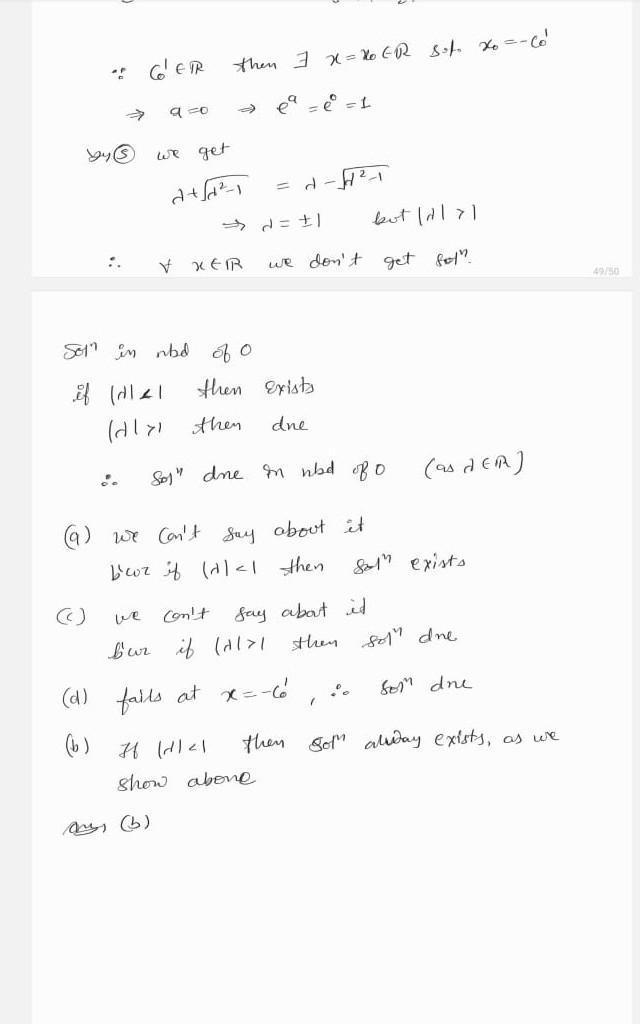 ∵ C₀' ∈ ℝ then ∃ x = x₀ ∈ ℝ s.t. x₀ = -C₀'
⇒ a=0 ⇒ eᵃ = e⁰ = 1
by ⑤ we get
λ+√(λ²-1) = λ-√(λ²-1)
⇒ λ = ±1 but |λ|>1
∴ ∀ x∈ℝ we don't get solⁿ.
49/50
Solⁿ in nbd of 0
if |λ|<1 then exists
|λ|>1 then dne
∴ solⁿ dne in nbd of 0 (as λ∈ℝ)
(a) we can't say about it
b'coz if |λ|<1 then solⁿ exists
(c) we can't say about it
b'coz if |λ|>1 then solⁿ dne
(d) fails at x=-C₀', ∴ solⁿ dne
(b) If |λ|<1 then solⁿ alway exists, as we
show above
Ans, (b)